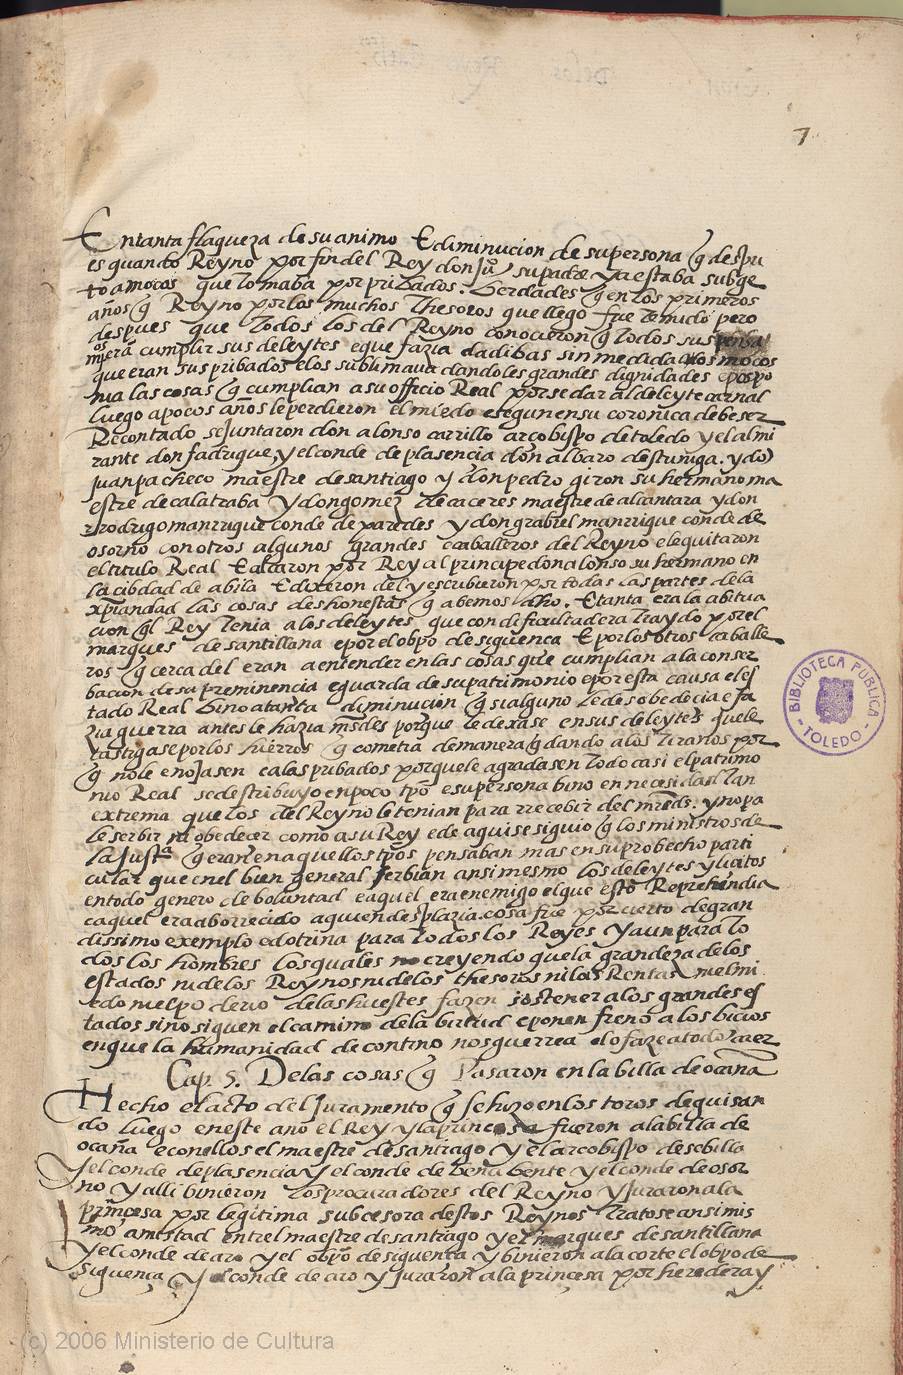 7
En tanta flaqueza de su animo E diminucion de su persona q̃ despu
es quando Reyno por fin del Rey don Ju° su padre ya estaba subge
to a moços que tomaba por pribados. berdad es q̃ en los primeros
años q̃ Reyno por los muchos thesoros que llego fue temido pero
despues que todos los del Reyno conocieron q̃ todos sus pensa
mi̅os era̅ cumplir sus deleytes e que fazia dadibas sin medida a los moços
que eran sus pribados e los sublimaua dandoles grandes dignidades e pospo
nia las cosas q̃ cumplian a su officio Real por se dar al deleyte carnal
luego a pocos años le perdieron el miedo e segun en su coronica debe ser
Recontado se juntaron don alonso carrillo arçobispo de toledo y el almi
rante don fadrique, y el conde de plasencia don albaro destuñiga. y do̅
juan pacheco maestre de santiago y don pedro giron su hermano ma
estre de calatraba y don gomez de caceres maestre de alcantara y don
rrodrigo manrrique conde de paredes y don grabiel manrique conde de
osorno con otros algunos grandes e caballeros del Reyno e le quitaron
el titulo Real E alçaron por Rey al principe don alonso su hermano en
la cibdad de abila E dixeron del y escribieron por todas las partes de la
xp̅iandad las cosas deshonestas q̃ abemos dho. E tanta era la abitua
cion q̃l Rey tenia a los deleytes que con dificultad era traydo por el
marques de santillana e por el obpo de siguença E por los otros caballe
ros q̃ cerca del eran a entender en las cosas que cumplian a la conser
bacion de su preminencia e guarda de su patrimonio e por esta causa el es
tado Real bino a tanta diminucion q̃ si alguno le desobedecia e fa
zia guerra antes le hazia m̅sdes porque le dexase en sus deleytes que le
castigase por los hierros q̃ cometia de manera q̃ dando a los tiranos por
q̃ no le enojasen e a las pribados porque le agradasen todo casi el patrimo
nio Real se destribuyo en poco tp̅o e su persona bino en necesidad tan
extrema que los del Reyno le tenian para rrecebir del m̅rds. y no pa
le serbir ni obedecer como a su Rey e de aqui se siguio q̃ los ministros de
la just.ª q̃ eran en aquellos tp̅os pensaban mas en su probecho parti
cular que en el bien general serbian ansi mesmo los deleytes yliçitos
en todo genero de boluntad e aquel era enemigo el que esto Reprehendia
e aquel era aborrecido a quien desplazia. cosa fue por cierto de gran
dissimo exemplo e dotrina para todos los Reyes y aun para to
dos los hombres los quales no creyendo que la grandeza de los
estados ni de los Reynos ni de los thesoros ni las Rentas ni el mi
edo ni el poderio de las huestes fazen sostener a los grandes es
tados si no siguen el camino de la birtud e ponen freno a los bicios
en que la humanidad de contino nos guerrea e lo faze a todo caer
Cap. 5. De las cosas q̃ Pasaron en la billa de ocaña
Hecho el acto del Juramento q̃ se hizo en los toros de guisan
do luego en este año el Rey y la princesa fueron a la billa de
ocaña e con ellos el maestre de santiago y el arçobispo de sebilla
y el conde de plasencia y el conde de bena bente y el conde de osor
no y alli binieron los procuradores del Reyno y juraron a la
princesa por legitima subcesora destos Reynos tratose ansimis
mo amistad entrel maestre de santiago y el marques de santillana
y el conde de aro y el obpo de siguença y binieron a la corte el obpo de
siguença y el conde de aro y juraron a la princesa por heredera y
BIBLIOTECA PÚBLICA
- TOLEDO -
(c) 2006 Ministerio de Cultura